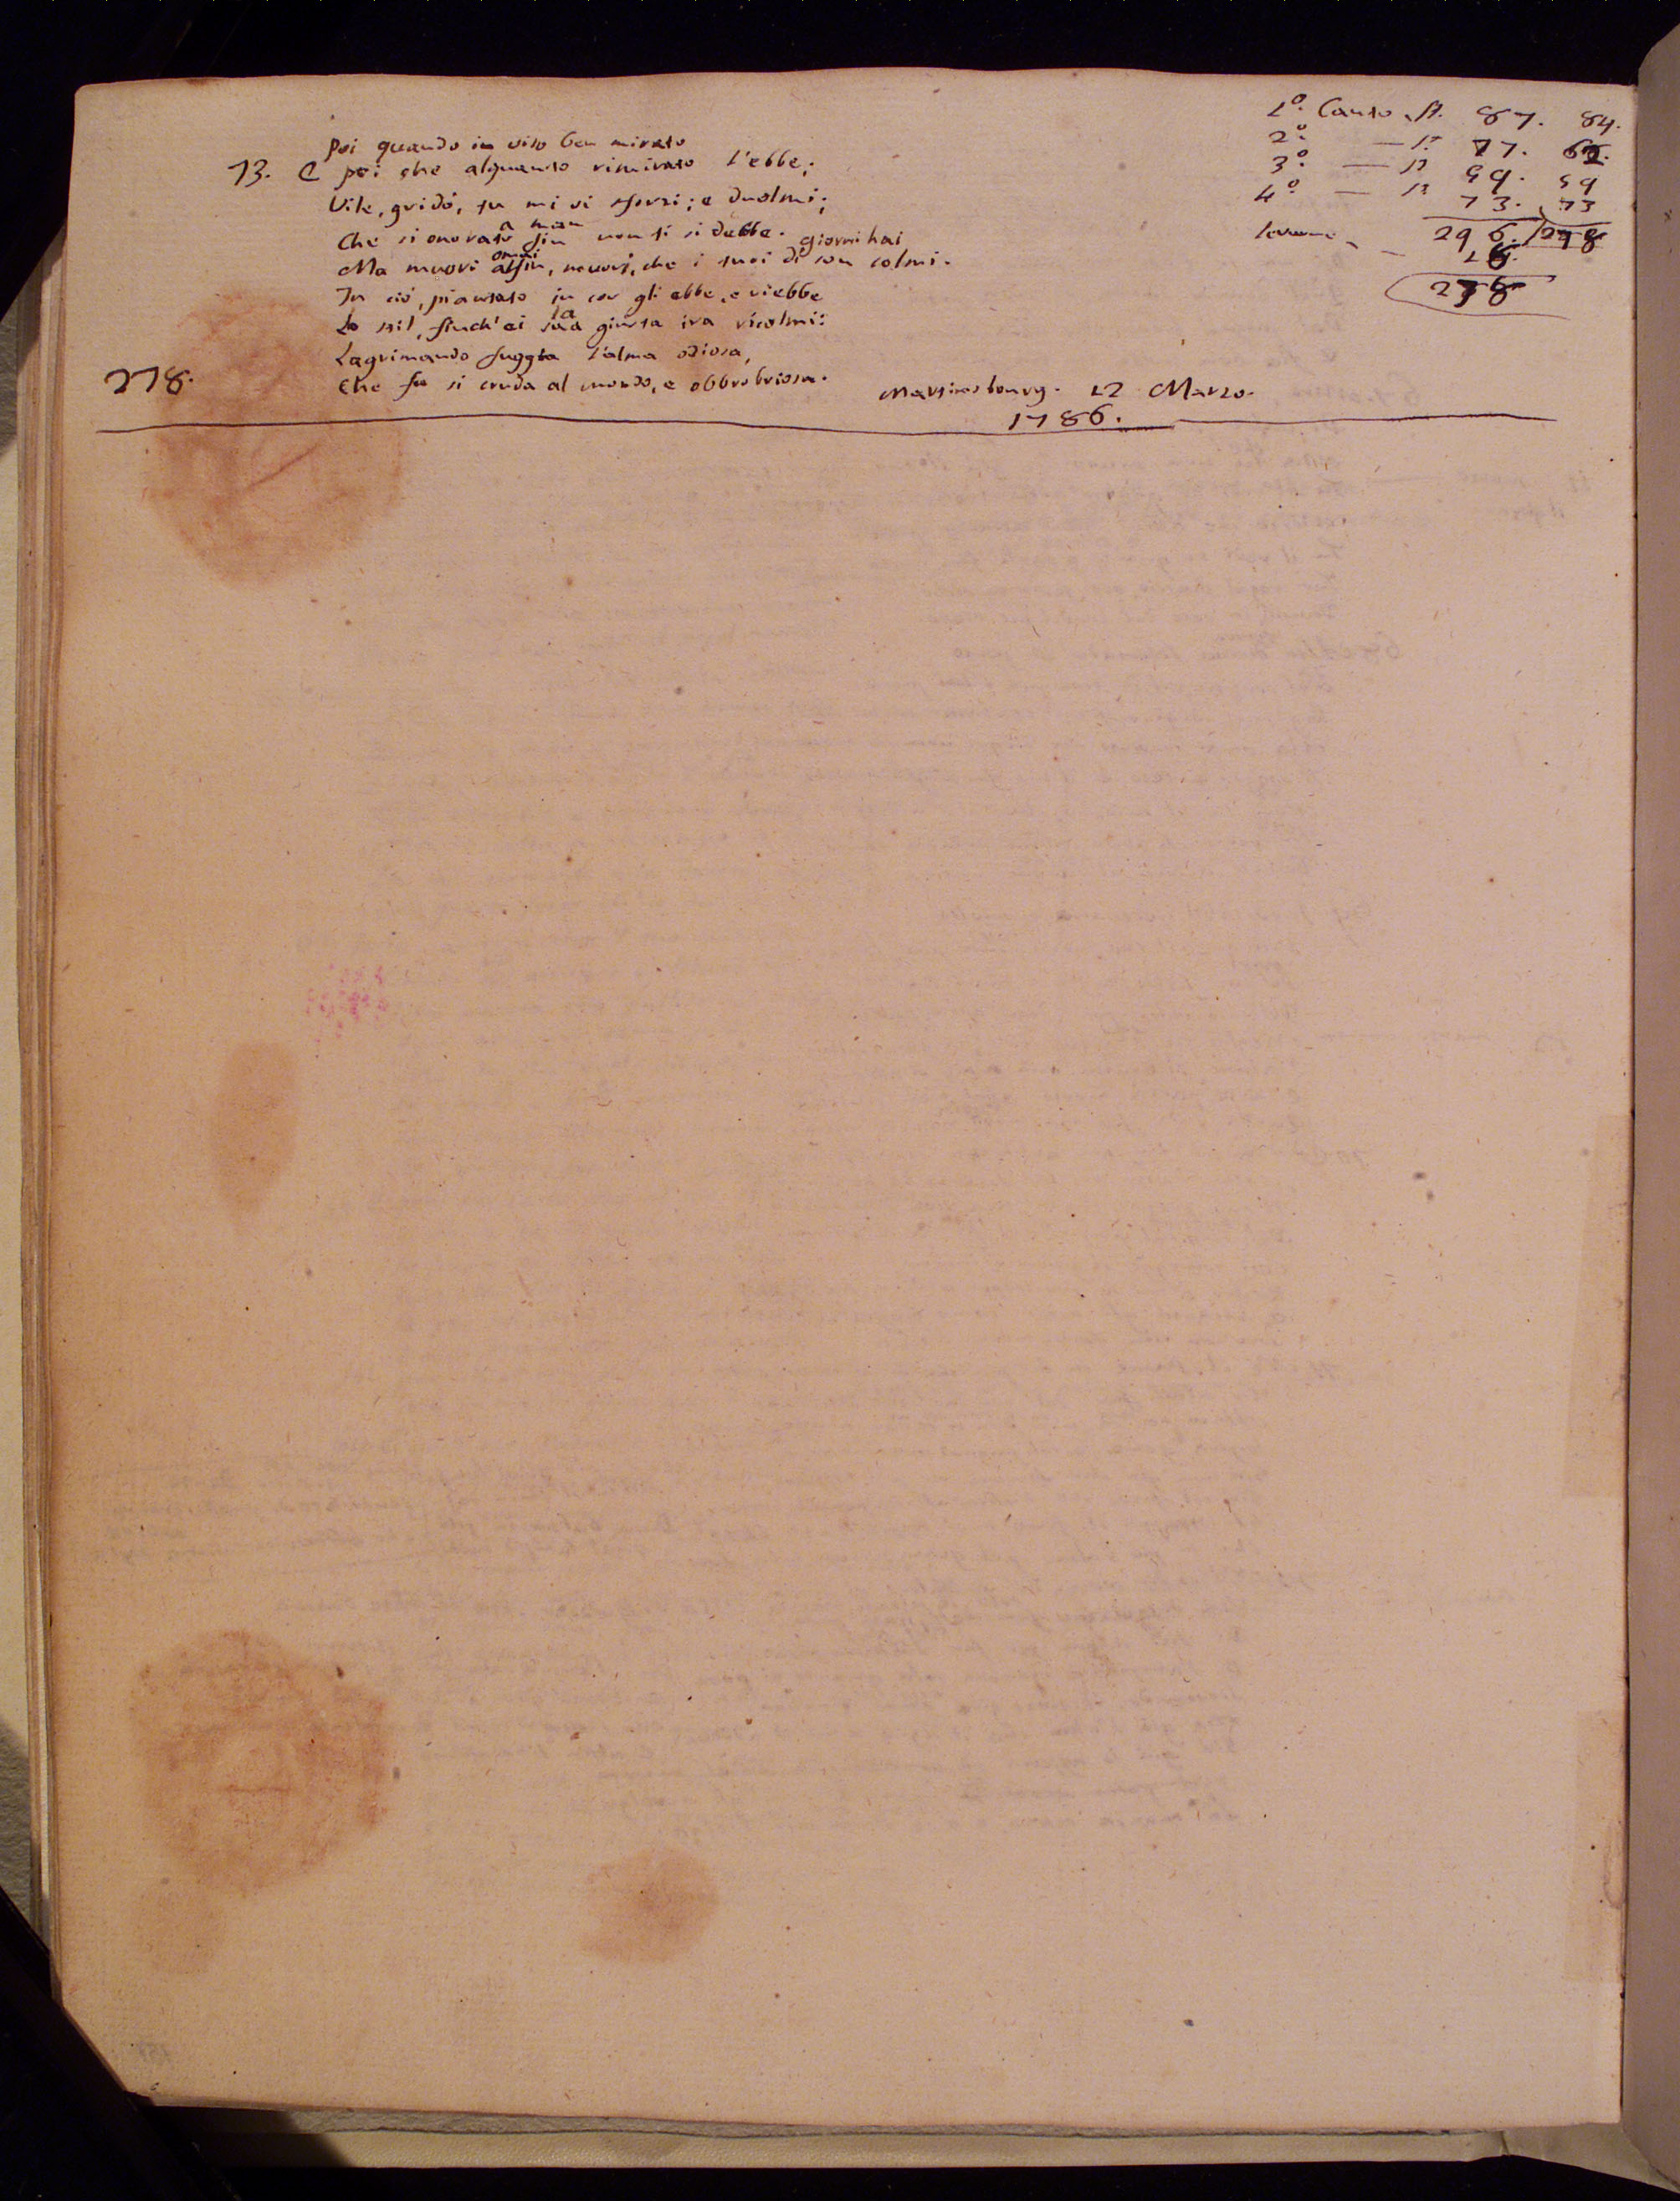 Poi quando in viso ben mirato
73. E poi che alquanto rimirato l'ebbe;
Vile, gridò, tu mi ti sforzi; e duolmi;
a man
Che sì onorato fin non ti si debbe.
giorni hai
omai
Ma muori alfin, muori, che i tuoi dì son colmi.
In ciò, piantato in cor gli ebbe, e riebbe
la
Lo stil, finch'ei sua giusta ira ricolmi:
Lagrimando fuggía l'alma odiosa,
278.
Che fu sì cruda al mondo, e obbrobriosa.
Martinsbourg. 12 Marzo.
1786.
1º. Canto. St. 87. 84.
2º. — St. 77. 62.
3º. — St 59. 59
4º — St 73. 73
296. 278
18.
278